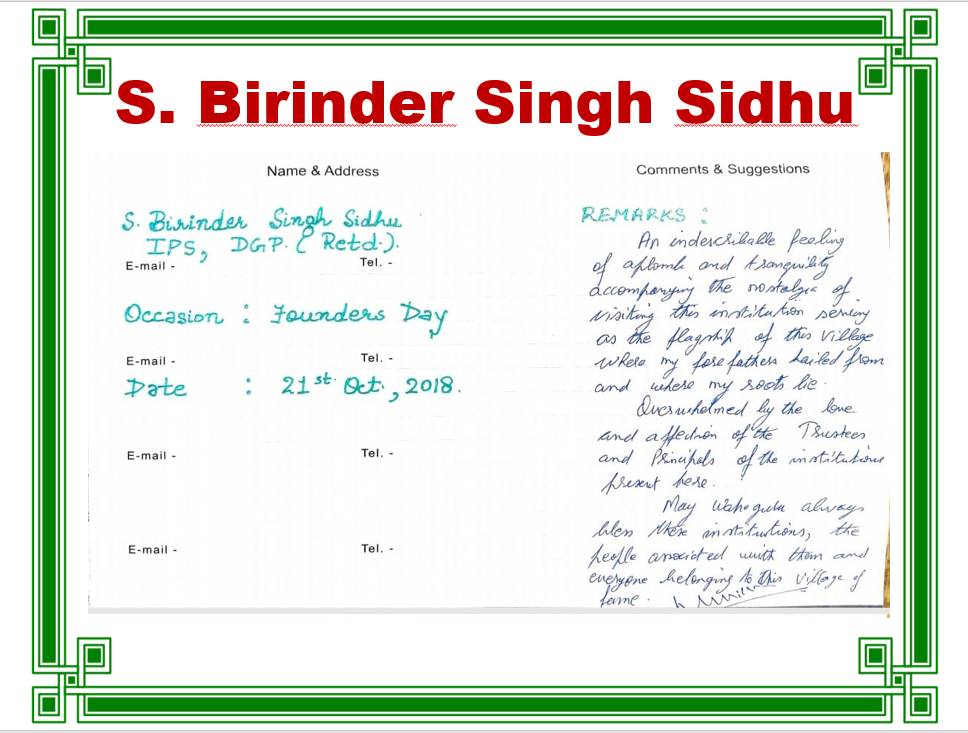 S. Birinder Singh Sidhu
Name & Address
S. Birinder Singh Sidhu
IPS, DGP. (Retd.).
E-mail - Tel. -
Occasion : Founders Day
E-mail - Tel. -
Date : 21st Oct., 2018.
E-mail - Tel. -
E-mail - Tel. -
Comments & Suggestions
REMARKS :
An indescribable feeling
of aplomb and tranquility
accompanying the nostalgia of
visiting this institution serving
as the flagship of this village
where my forefathers hailed from
and where my roots lie.
Overwhelmed by the love
and affection of the Trustees
and Principals of the institutions
present here.
May Waheguru always
bless these institutions, the
people associated with them and
everyone belonging to this village of
fame.